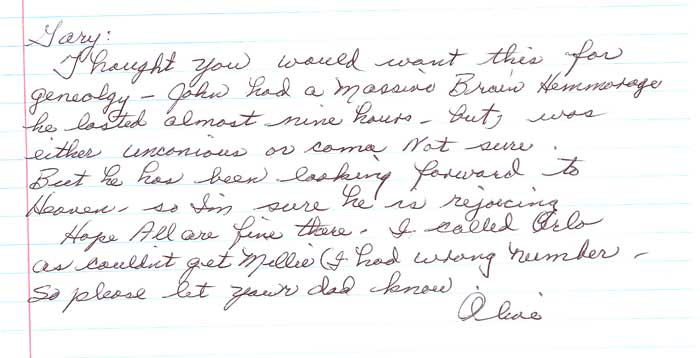 Gary:
I thought you would want this for
geneolgy - John had a Massive Brain Hemmorage
he lasted almost nine hours - but, was
either unconious or coma Not sure.
But he has been looking forward to
Heaven - so I'm sure he is rejoicing
Hope All are fine there. I called Orlo
as couldn't get Millie (I had wrong number -
So please let your dad know.
Olive